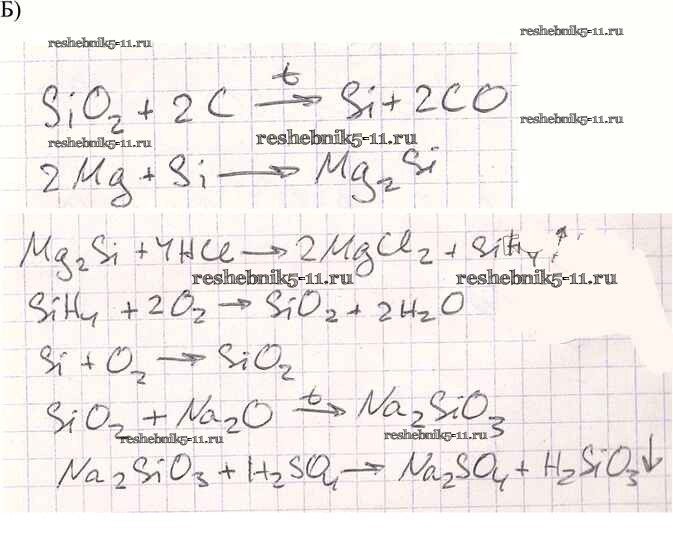 Б)
reshebnik5-11.ru
reshebnik5-11.ru
SiO₂ + 2C —t→ Si + 2CO
reshebnik5-11.ru
reshebnik5-11.ru
reshebnik5-11.ru
2Mg + Si → Mg₂Si
Mg₂Si + 4HCl → 2MgCl₂ + SiH₄↑
reshebnik5-11.ru
reshebnik5-11.ru
SiH₄ + 2O₂ → SiO₂ + 2H₂O
Si + O₂ → SiO₂
SiO₂ + Na₂O —t→ Na₂SiO₃
reshebnik5-11.ru
reshebnik5-11.ru
Na₂SiO₃ + H₂SO₄ → Na₂SO₄ + H₂SiO₃↓